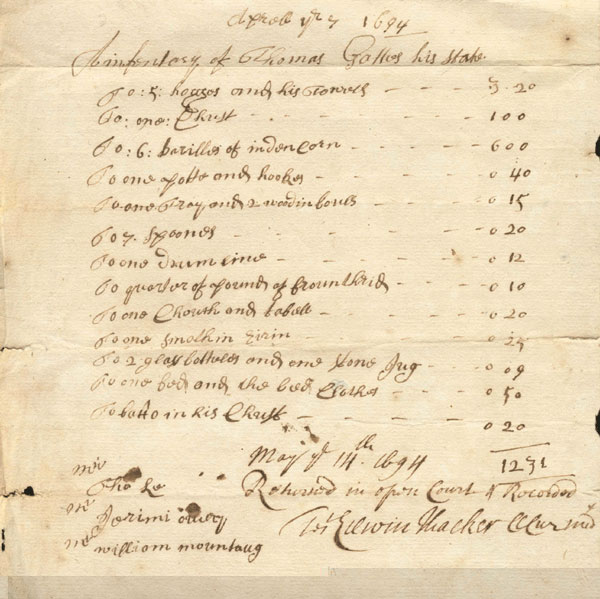 Apreel ye 7 1694
A infentary of Thomas Gattes his state
To: 5: hogges and his towels 3-20
To: one: Chust 100
To: 6: barilles of inden Corn 600
To one potte and hookes 0 40
To one tray and 2 woodin boules 0 15
to 7 spoones 0 20
to one drum line 0 12
to quarter of pound of broun thrid 0 10
to one and 0 20
to one smothin Eirin 0 25
to 2 glass botteles and one stone Jug 0 09
to one bed and the bed Clothes 0 50
to batto in his Chust 0 20
May ye 14th 1694 1231
Returned in open Court & Recorded
Tho Le
Jerimi
william mountaug
Test Edwin Thacker